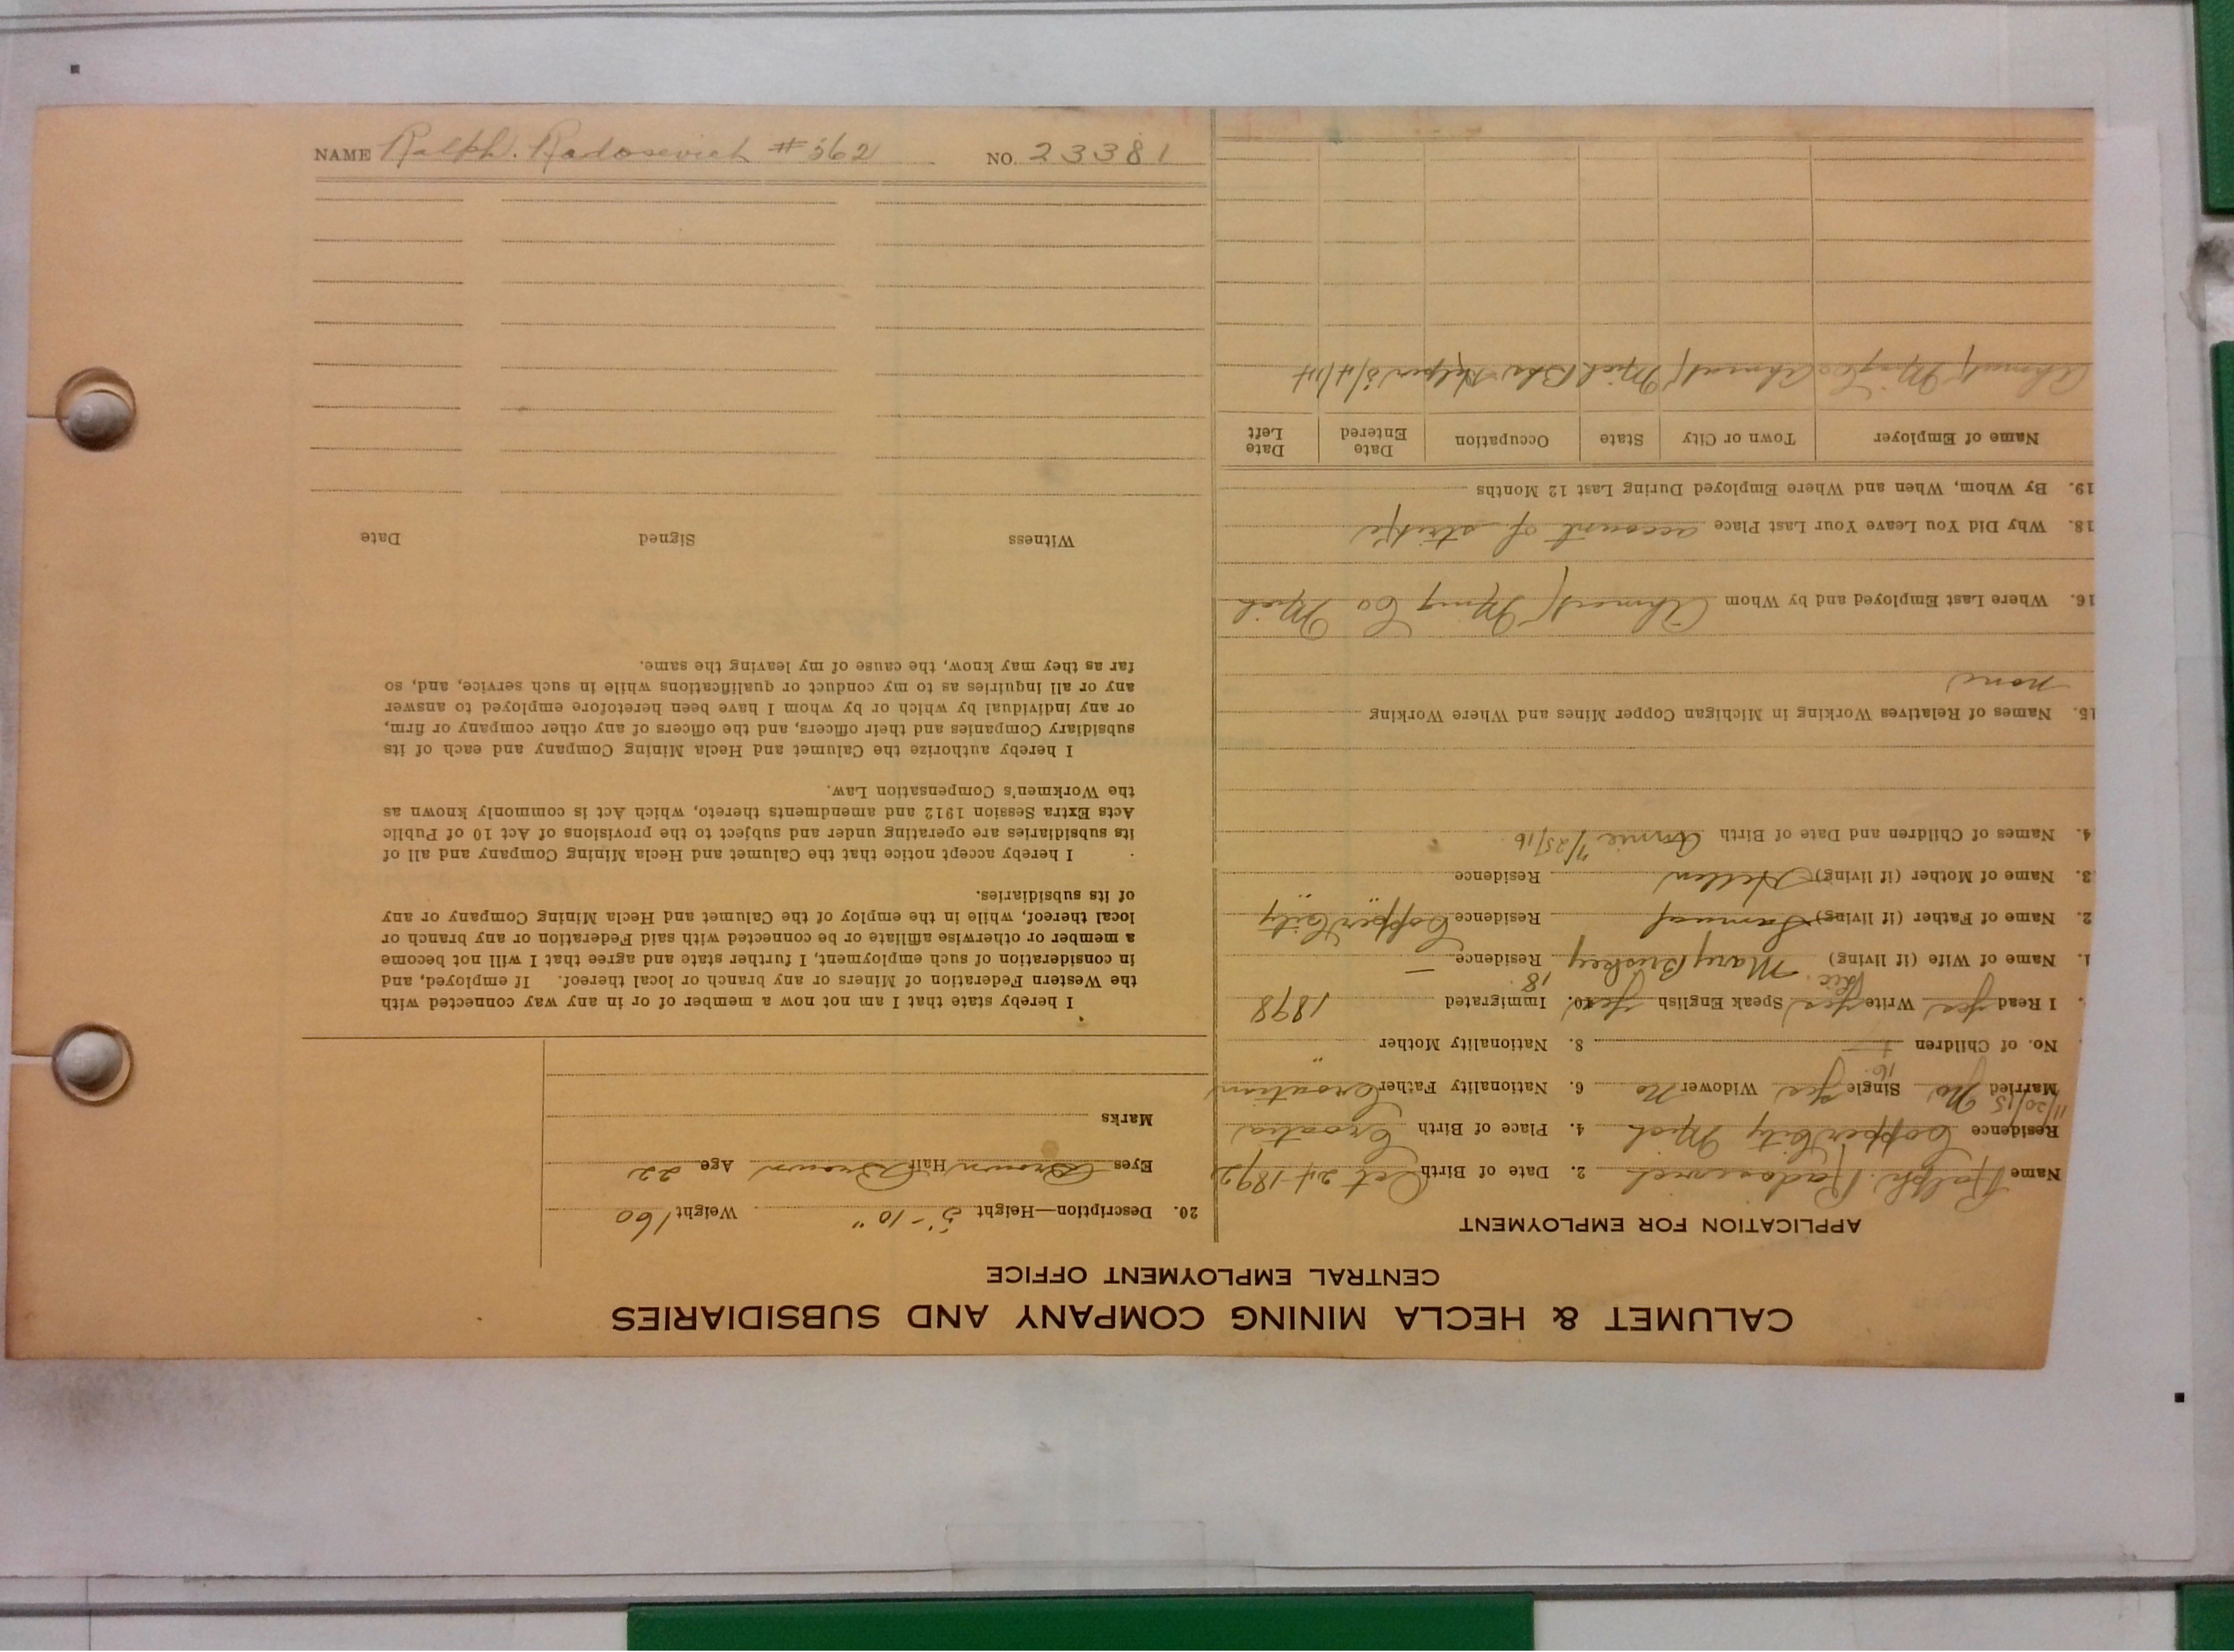 CALUMET & HECLA MINING COMPANY AND SUBSIDIARIES
CENTRAL EMPLOYMENT OFFICE
APPLICATION FOR EMPLOYMENT
Name Ralph. Radosevich 2. Date of Birth Oct 24-1892
Residence Copper City Mich 4. Place of Birth Croatia
11/20/15 16
Married No Single Yes Widower No 6. Nationality Father Croatian
No. of Children 8. Nationality Mother "
I Read Yes Write Yes Speak English Yes 10. Immigrated 1898
18
1. Name of Wife (if living) Mary Briskey Residence —
2. Name of Father (if living) Samual Residence Copper City
3. Name of Mother (if living) Hellen Residence " "
4. Names of Children and Date of Birth Annie /25/16
15. Names of Relatives Working in Michigan Copper Mines and Where Working
none
16. Where Last Employed and by Whom Ahmeek Mng Co Mich
18. Why Did You Leave Your Last Place account of strike
19. By Whom, When and Where Employed During Last 12 Months
Name of Employer Town or City State Occupation Date Entered Date Left
Ahmeek Mng Co Ahmeek Mich Helper
20. Description—Height 5'-10" Weight 160
Eyes Brown Hair Brown Age 22
Marks
I hereby state that I am not now a member of or in any way connected with
the Western Federation of Miners or any branch or local thereof. If employed, and
in consideration of such employment, I further state and agree that I will not become
a member or otherwise affiliate or be connected with said Federation or any branch or
local thereof, while in the employ of the Calumet and Hecla Mining Company or any
of its subsidiaries.
I hereby accept notice that the Calumet and Hecla Mining Company and all of
its subsidiaries are operating under and subject to the provisions of Act 10 of Public
Acts Extra Session 1912 and amendments thereto, which Act is commonly known as
the Workmen's Compensation Law.
I hereby authorize the Calumet and Hecla Mining Company and each of its
subsidiary Companies and their officers, and the officers of any other company or firm,
or any individual by which or by whom I have been heretofore employed to answer
any or all inquiries as to my conduct or qualifications while in such service, and, so
far as they may know, the cause of my leaving the same.
Witness Signed Date
NAME Ralph. Radosevich #562 NO. 23381